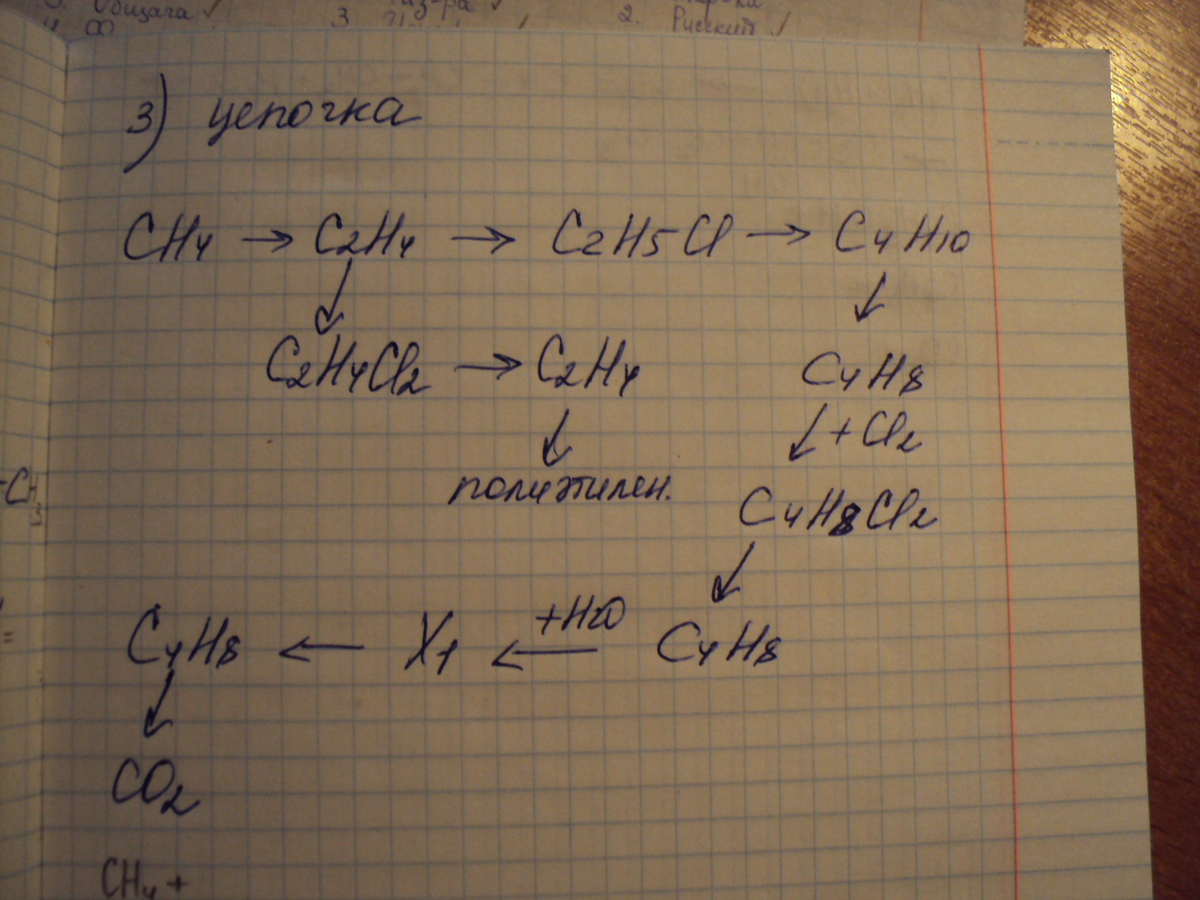 Общага ✓
3
2. Русский ✓
3) цепочка
CH4 → C2H4 → C2H5Cl → C4H10
↓ ↓
C2H4Cl2 → C2H4 C4H8
↓ ↓ +Cl2
полиэтилен. C4H8Cl2
↓
C4H8 ← X1 ← +H2O C4H8
↓
CO2
CH4 +
-CH3
=